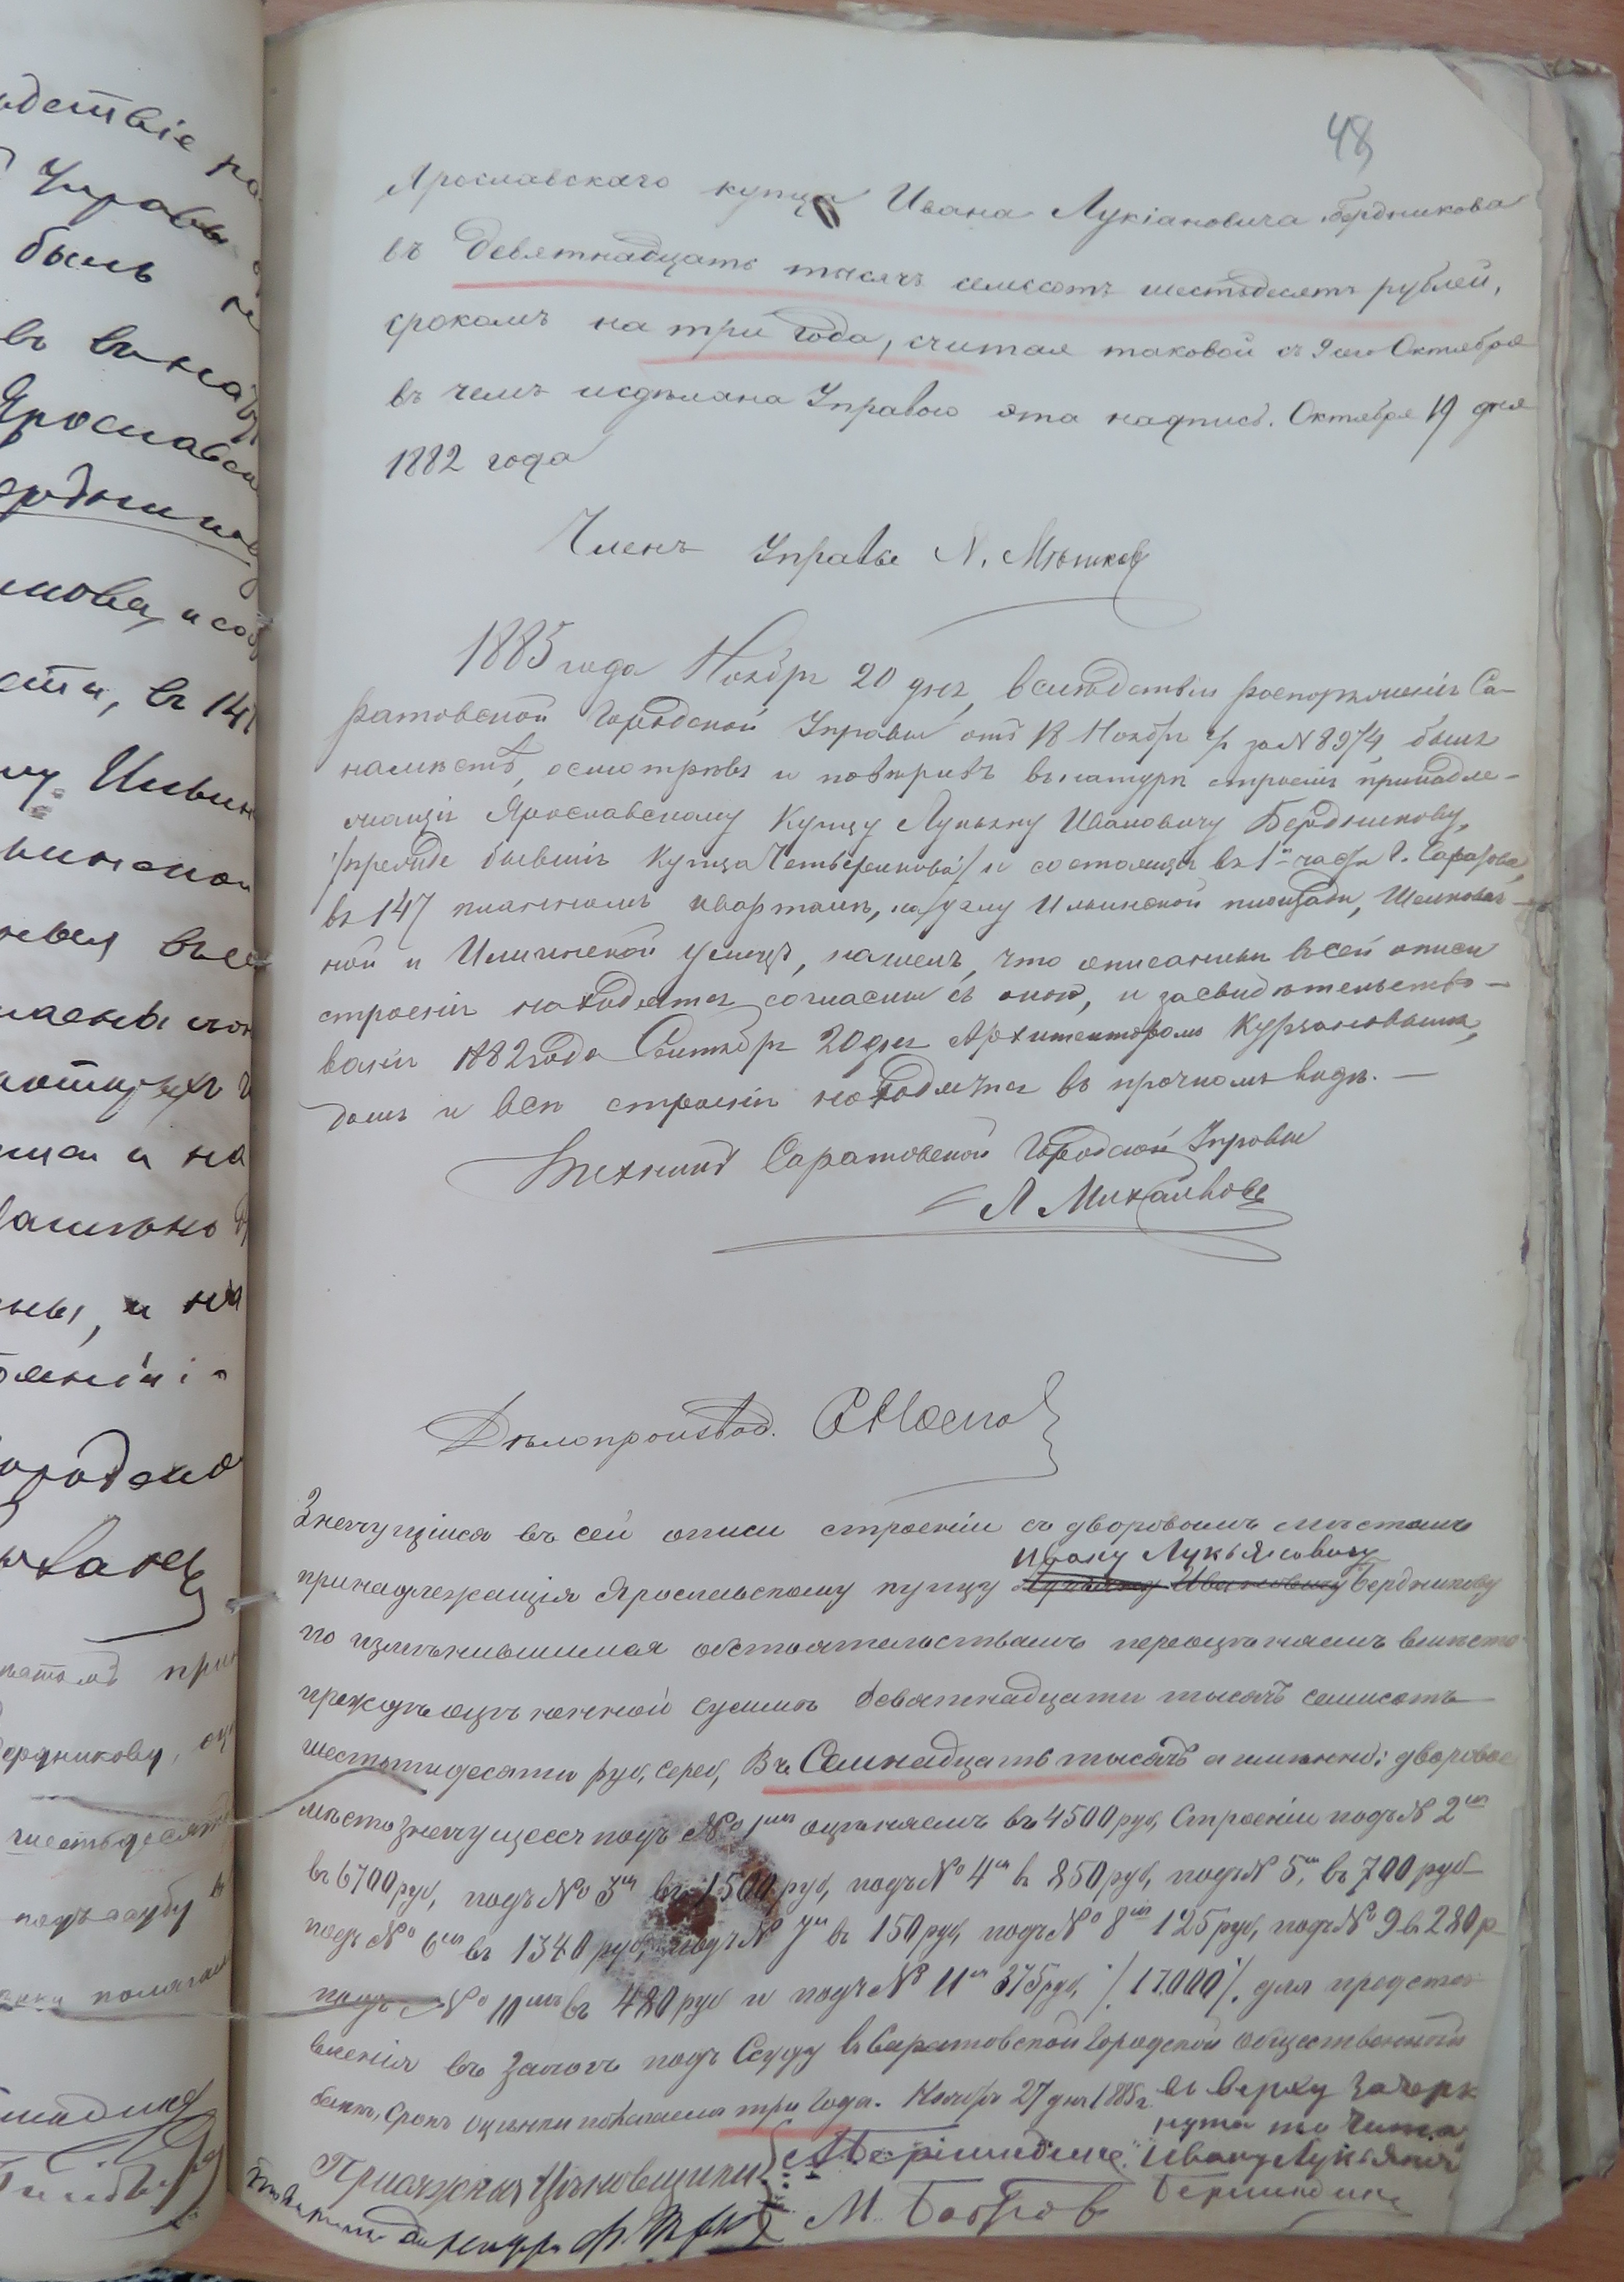 48
Ярославскаго купца Ивана Лукіановича Бердникова
въ девятнадцать тысячъ семьсотъ шестьдесятъ рублей,
срокомъ на три года, считая таковой съ 9го Октября
въ чемъ и сдѣлана Управою эта надпись. Октября 19 дня
1882 года
Членъ Управы Н. Мѣшков
1885 года Ноября 20 дня, вслѣдствіи распоряженія Са-
ратовской Городской Управы отъ 18 Ноября за № 8974, былъ
на мѣстѣ, осмотрѣвъ и повѣривъ въ натурѣ строенія принадле-
жащія Ярославскому Купцу Лукьяну Ивановичу Бердникову,
/прежде бывшія Купца Четверикова/ и состоящія въ 1й части г. Саратова,
въ 147 плановомъ кварталѣ, на углу Ильинской площади, Шелкович-
ной и Ильинской улицъ, нашелъ, что описанныя въ сей описи
строенія находятся согласны съ оною, и засвидѣтельство-
ванія 1882 года Сентября 20 дня Архитекторомъ
домъ и всѣ строенія находятся въ прочномъ видѣ. —
Техникъ Саратовской Городской Управы
А Михайловъ
Дѣлопроизвод.
Значущіяся въ сей описи строенія съ дворовымъ мѣстомъ
Ивану Лукьяновичу
принадлежащія Ярославскому купцу Лукьяну Ивановичу Бердникову
по измѣнившимся обстоятельствамъ переоцѣняемъ вмѣсто
прежде оцѣненной суммы девятнадцати тысячъ семисотъ
шестидесяти руб, сереб, Въ Семнадцать тысячъ а именно: дворовое
мѣсто значущееся подъ № 1мъ оцѣняемъ въ 4500 руб, Строеніи подъ № 2мъ
въ 6700 руб, подъ № 3м въ 1500 руб, подъ № 4м въ 850 руб, подъ № 5м въ 700 руб
подъ № 6м въ 1340 руб, подъ № 7м въ 150 руб, подъ № 8м 125 руб, подъ № 9 въ 280 р
подъ № 10мъ въ 480 руб и подъ № 11м 375 руб, /17.000/. для предста-
вленія въ залогъ подъ Ссуду въ Саратовской Городской Общественный
банкъ, срокъ оцѣнки полагаемъ три года. Ноября 27 дня 1885 г. въ верху зачерк
нуто то читать
Присяжныя Цѣновщики Ивану Лукьянов
М. Бобров